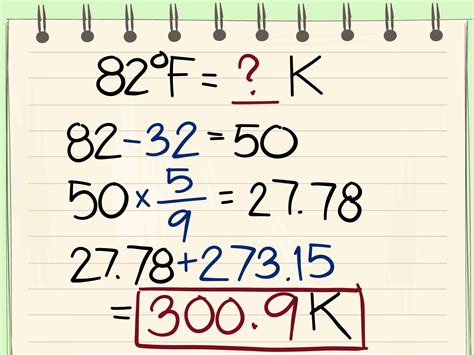 82°F = ? K
82 - 32 = 50
50 × 5/9 = 27.78
27.78 + 273.15
= 300.9K